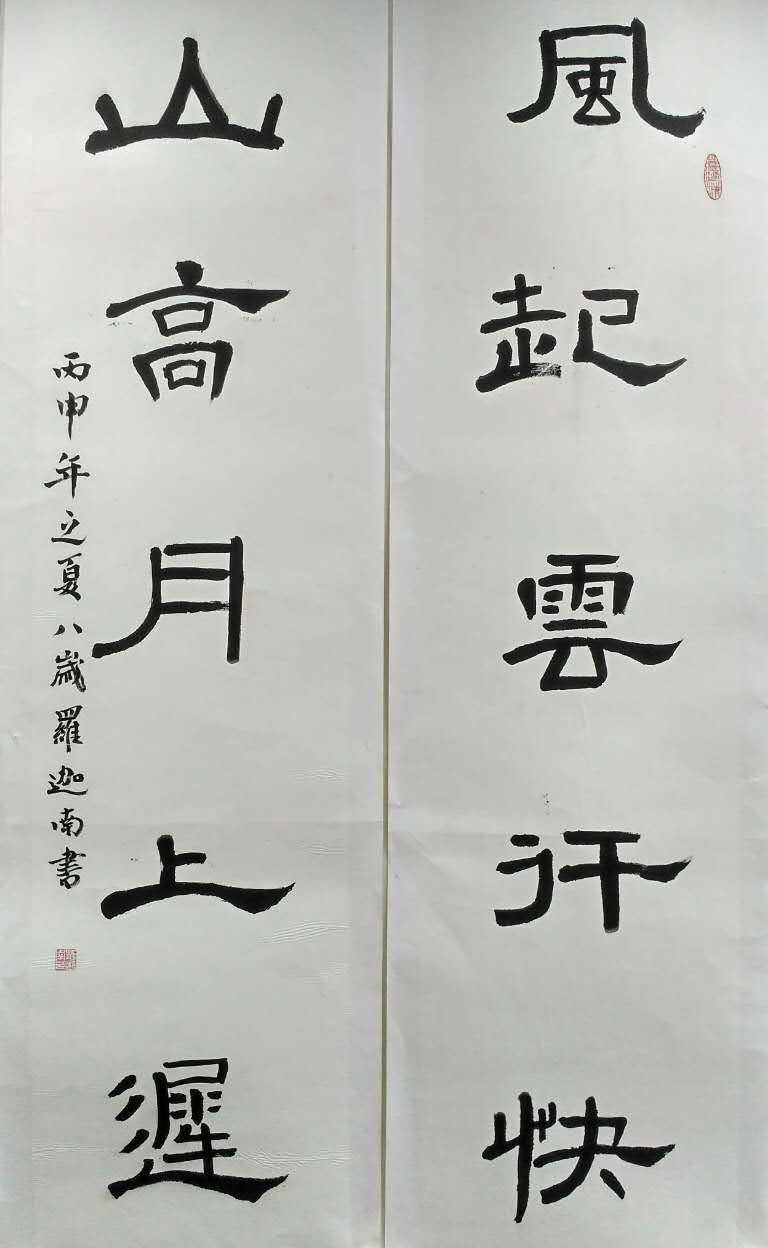 風起雲行快
山高月上遲
丙申年之夏八歲羅迦南书